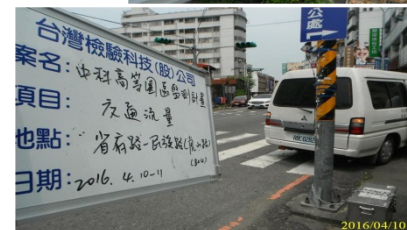 公處
台灣檢驗科技(股)公司
案名:中科高等園區監測計畫
項目:交通流量
地點:省府路-民族路(
日期:2016. 4. 10-11
2016/04/10